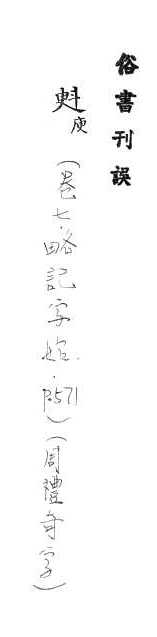 俗書刊誤
斞庾(卷七.略記字始.P.571)(周禮奇字)